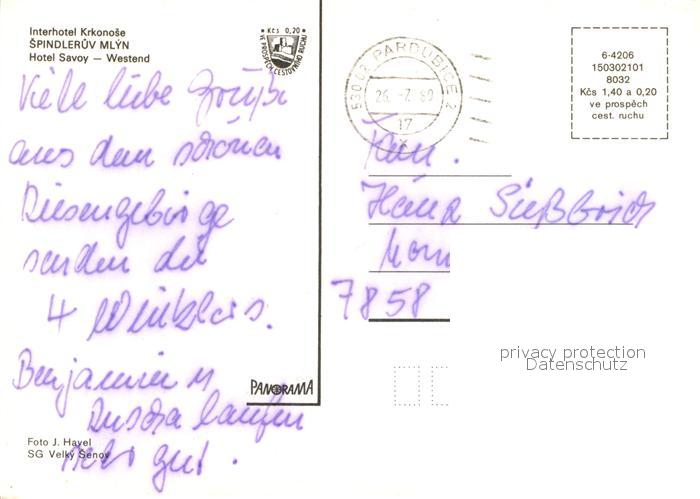 Interhotel Krkonoše
ŠPINDLERŮV MLÝN
Hotel Savoy — Westend
Kčs 0,20
VE PROSPĚCH CESTOVNÍHO RUCHU
Viele liebe Grüße
aus dem schönen
Riesengebirge
senden die
4 Winklers.
Benjamin u
laufen
sehr gut.
PANORAMA
Foto J. Havel
SG Velký Šenov
530 02 PARDUBICE 2
26.-7.89
17
6-4206
150302101
8032
Kčs 1,40 a 0,20
ve prospěch
cest. ruchu
Fam.
Süßbrich
7858
privacy protection
Datenschutz